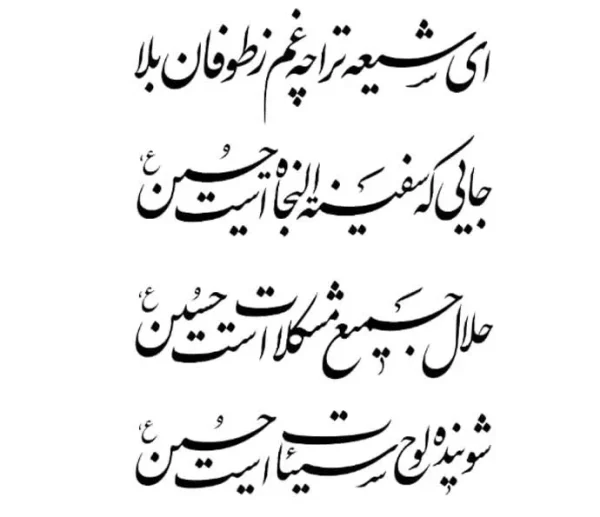 ای شیعه تو را چه غم ز طوفان بلا
جایی که سفینه النجاه است حسین ع
حلال جمیع مشکلات است حسین ع
شوینده لوح سیئات است حسین ع